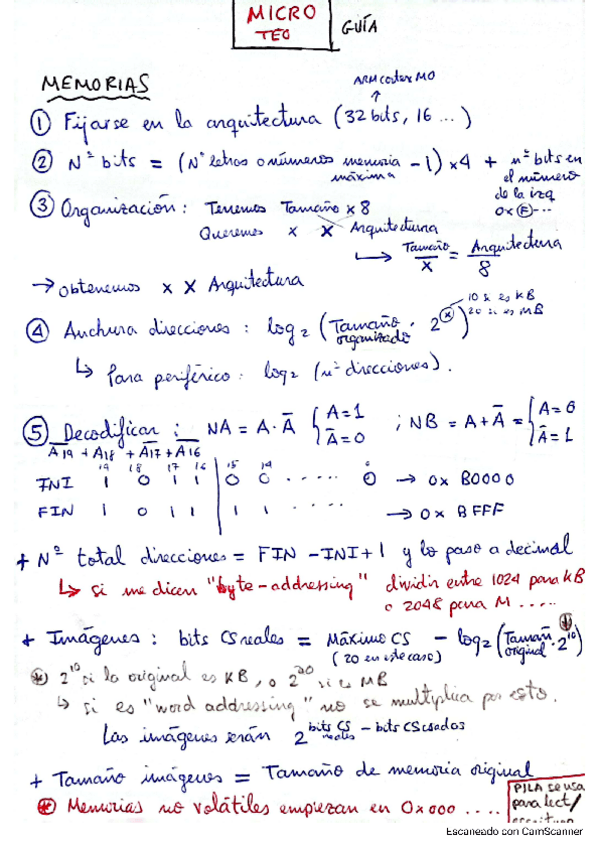 MICRO
TEO
GUÍA
MEMORIAS
ARM cortex M0
① Fijarse en la arquitectura (32 bits, 16 ...)
② Nº bits = (Nº letras o números memoria máxima - 1) x4 + nº bits en el número de la izq 0x(F)...
③ Organización: Tenemos Tamaño x 8
Queremos x x Arquitectura
↳ Tamaño/x = Arquitectura/8
→ Obtenemos x x Arquitectura
④ Anchura direcciones: log₂ (Tamaño organizado · 2^(x))
10 si es KB
20 si es MB
↳ Para periférico: log₂ (nº direcciones).
⑤ Decodificar: NA = A · Ā { A=1 Ā=0 ; NB = A + Ā = { A=0 Ā=1
A̅19 + A18 + A̅17 + A̅16
19 18 17 16 15 14 0
INI 1 0 1 1 | 0 0 ..... 0 → 0x B0000
FIN 1 0 1 1 | 1 1 ..... → 0x BFFF
+ Nº total direcciones = FIN - INI + 1 y lo paso a decimal
↳ si me dicen "byte-addressing" dividir entre 1024 para KB
o 2048 para M .....
+ Imágenes: bits CS reales = Máximo CS - log₂ (Tamañ. original · 2¹⁰)
(20 en este caso)
* 2¹⁰ si la original es KB, o 2²⁰ si es MB
↳ si es "word addressing" no se multiplica por esto.
Las imágenes serán 2^(bits CS reales - bits CS usados)
+ Tamaño imágenes = Tamaño de memoria original
* Memorias no volátiles empiezan en 0x000 ....
PILA se usa
para lect/
Escaneado con CamScanner